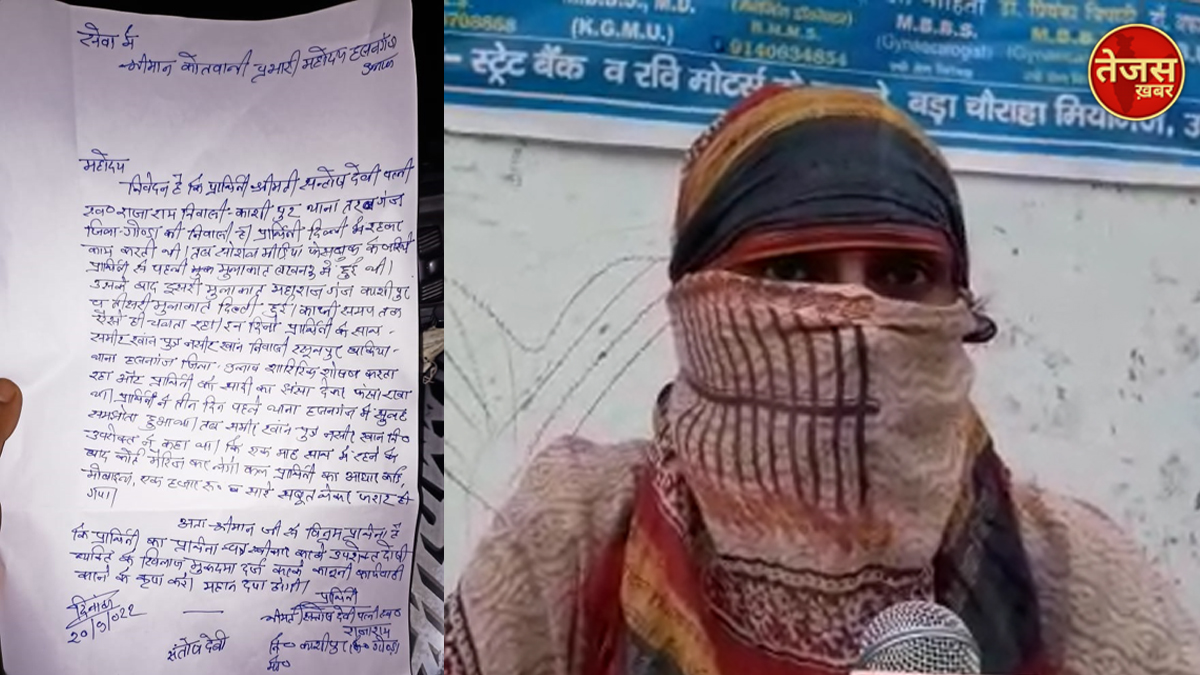 सेवा में
श्रीमान कोतवाली प्रभारी महोदय हसनगंज
उन्नाव
महोदय
निवेदन है कि प्रार्थिनी श्रीमती सन्तोष देवी पत्नी
स्व० राजा राम निवासी- काशी पुर थाना तरबगंज
जिला-गोण्डा की निवासी है। प्रार्थिनी दिल्ली में रहकर
काम करती थी। तब सोशल मीडिया फेसबुक के जरिये
प्रार्थिनी से पहली मुलाकात लखनऊ में हुई थी।
उसके बाद दूसरी मुलाकात महाराज गंज काशीपुर
व तीसरी मुलाकात दिल्ली हुई। काफी समय तक
ऐसे ही चलता रहा। इन दिनो प्रार्थिनी के साथ-
समीर खान पुत्र नसीर खान निवासी रसूलपुर
थाना हसनगंज जिला- उन्नाव शारिरिक शोषण करता
रहा और प्रार्थिनी को शादी का झांसा देकर फंसा रखा
था। प्रार्थिनी ने तीन दिन पहले थाना हसनगंज में सुलह
समझौता हुआ था। तब समीर खान पुत्र नसीर खान नि०
उपरोक्त ने कहा था। कि एक माह साथ में रहने के
बाद कोर्ट मैरिज कर लेगे। कल प्रार्थिनी का आधार कार्ड,
मोबाइल, एक हजार रू० व सारे सबूत लेकर फरार हो
गया।
अतः श्रीमान जी से विनम्र प्रार्थना है
कि प्रार्थिनी का प्रार्थना पत्र स्वीकार करके उपरोक्त दोषी
व्यक्ति के खिलाफ मुकदमा दर्ज करके कानूनी कार्यवाही
करने की कृपा करें। महान दया होगी।
दिनांक
20/9/022
प्रार्थिनी
श्रीमती सन्तोष देवी पत्नी स्व०
राजाराम
संतोष देवी
नि० काशीपुर जि० गोण्डा
मो०
708868
M.B.B.S., M.D.
(K.G.M.U.)
B.H.M.S.
914063484
M.B.B.S.
(Gynaecologist)
डॉ. प्रियंका तिवारी
- स्ट्रेट बैंक व रवि मोटर्स
बड़ा चौराहा मियागंज,
तेजस
ख़बर